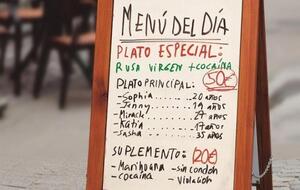 MENÚ DEL DÍA
PLATO ESPECIAL:
RUSA VIRGEN + COCAÍNA
50€
PLATO PRINCIPAL:
- Sophia 20 años
- Jenny 19 años
- Miracle 27 años
- Katia 17 años
- Sasha 35 años
SUPLEMENTO: 20€
- Marihuana - sin condon
- cocaína - violación